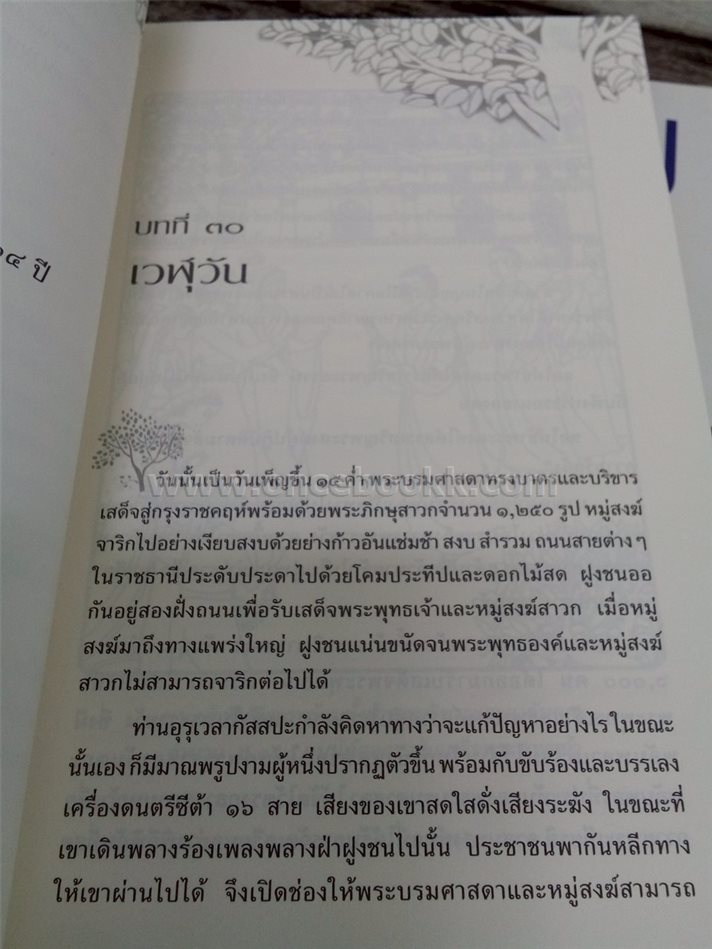 ๑๔ ปี
บทที่ ๓๐
เวฬุวัน
วันนั้นเป็นวันเพ็ญขึ้น ๑๕ ค่ำ พระบรมศาสดาทรงบาตรและบริขาร
เสด็จสู่กรุงราชคฤห์พร้อมด้วยพระภิกษุสาวกจำนวน ๑,๒๕๐ รูป หมู่สงฆ์
จาริกไปอย่างเงียบสงบด้วยย่างก้าวอันแช่มช้า สงบ สำรวม ถนนสายต่าง ๆ
ในราชธานีประดับประดาไปด้วยโคมประทีปและดอกไม้สด ฝูงชนออ
กันอยู่สองฝั่งถนนเพื่อรับเสด็จพระพุทธเจ้าและหมู่สงฆ์สาวก เมื่อหมู่
สงฆ์มาถึงทางแพร่งใหญ่ ฝูงชนแน่นขนัดจนพระพุทธองค์และหมู่สงฆ์
สาวกไม่สามารถจาริกต่อไปได้
ท่านอุรุเวลากัสสปะกำลังคิดหาทางว่าจะแก้ปัญหาอย่างไร ในขณะ
นั้นเอง ก็มีมาณพรูปงามผู้หนึ่งปรากฏตัวขึ้น พร้อมกับขับร้องและบรรเลง
เครื่องดนตรีซีต้า ๑๖ สาย เสียงของเขาสดใสดั่งเสียงระฆัง ในขณะที่
เขาเดินพลางร้องเพลงพลางฝ่าฝูงชนไปนั้น ประชาชนพากันหลีกทาง
ให้เขาผ่านไปได้ จึงเปิดช่องให้พระบรมศาสดาและหมู่สงฆ์สามารถ